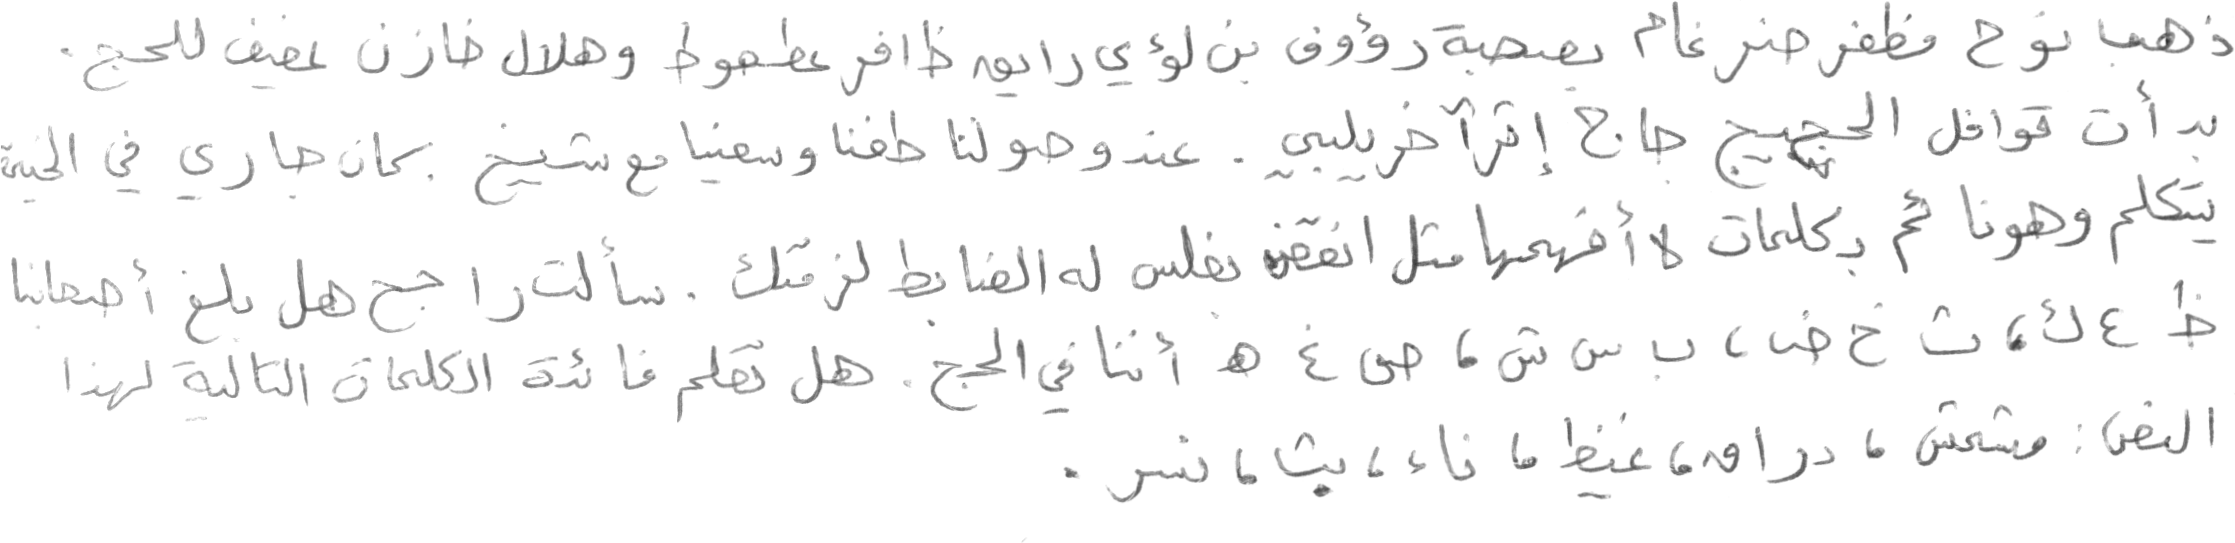 ذهب نوح مظفر ضرغام بصحبة رؤوف بن لؤي رايق ظافر عطعوط وهلال خازن عفيف للحج .
بدأت قوافل الحجيج حاج إثر آخر يلبي . عند وصولنا طفنا وسعينا مع شيخ . كان جاري في الخيمة
يتكلم وهو نائم بكلمات لا أفهمها مثل انغض بغلس له الضابط لزمتك . سألت راجح هل بلغ أصحابنا
ظ ع ك ، ث خ ض ، ب س ش ، ص غ ه أننا في الحج . هل تعلم فائدة الكلمات التالية لهذا
النص : مشمش ، دراق ، غيظ ، ناء ، بث ، نسر .